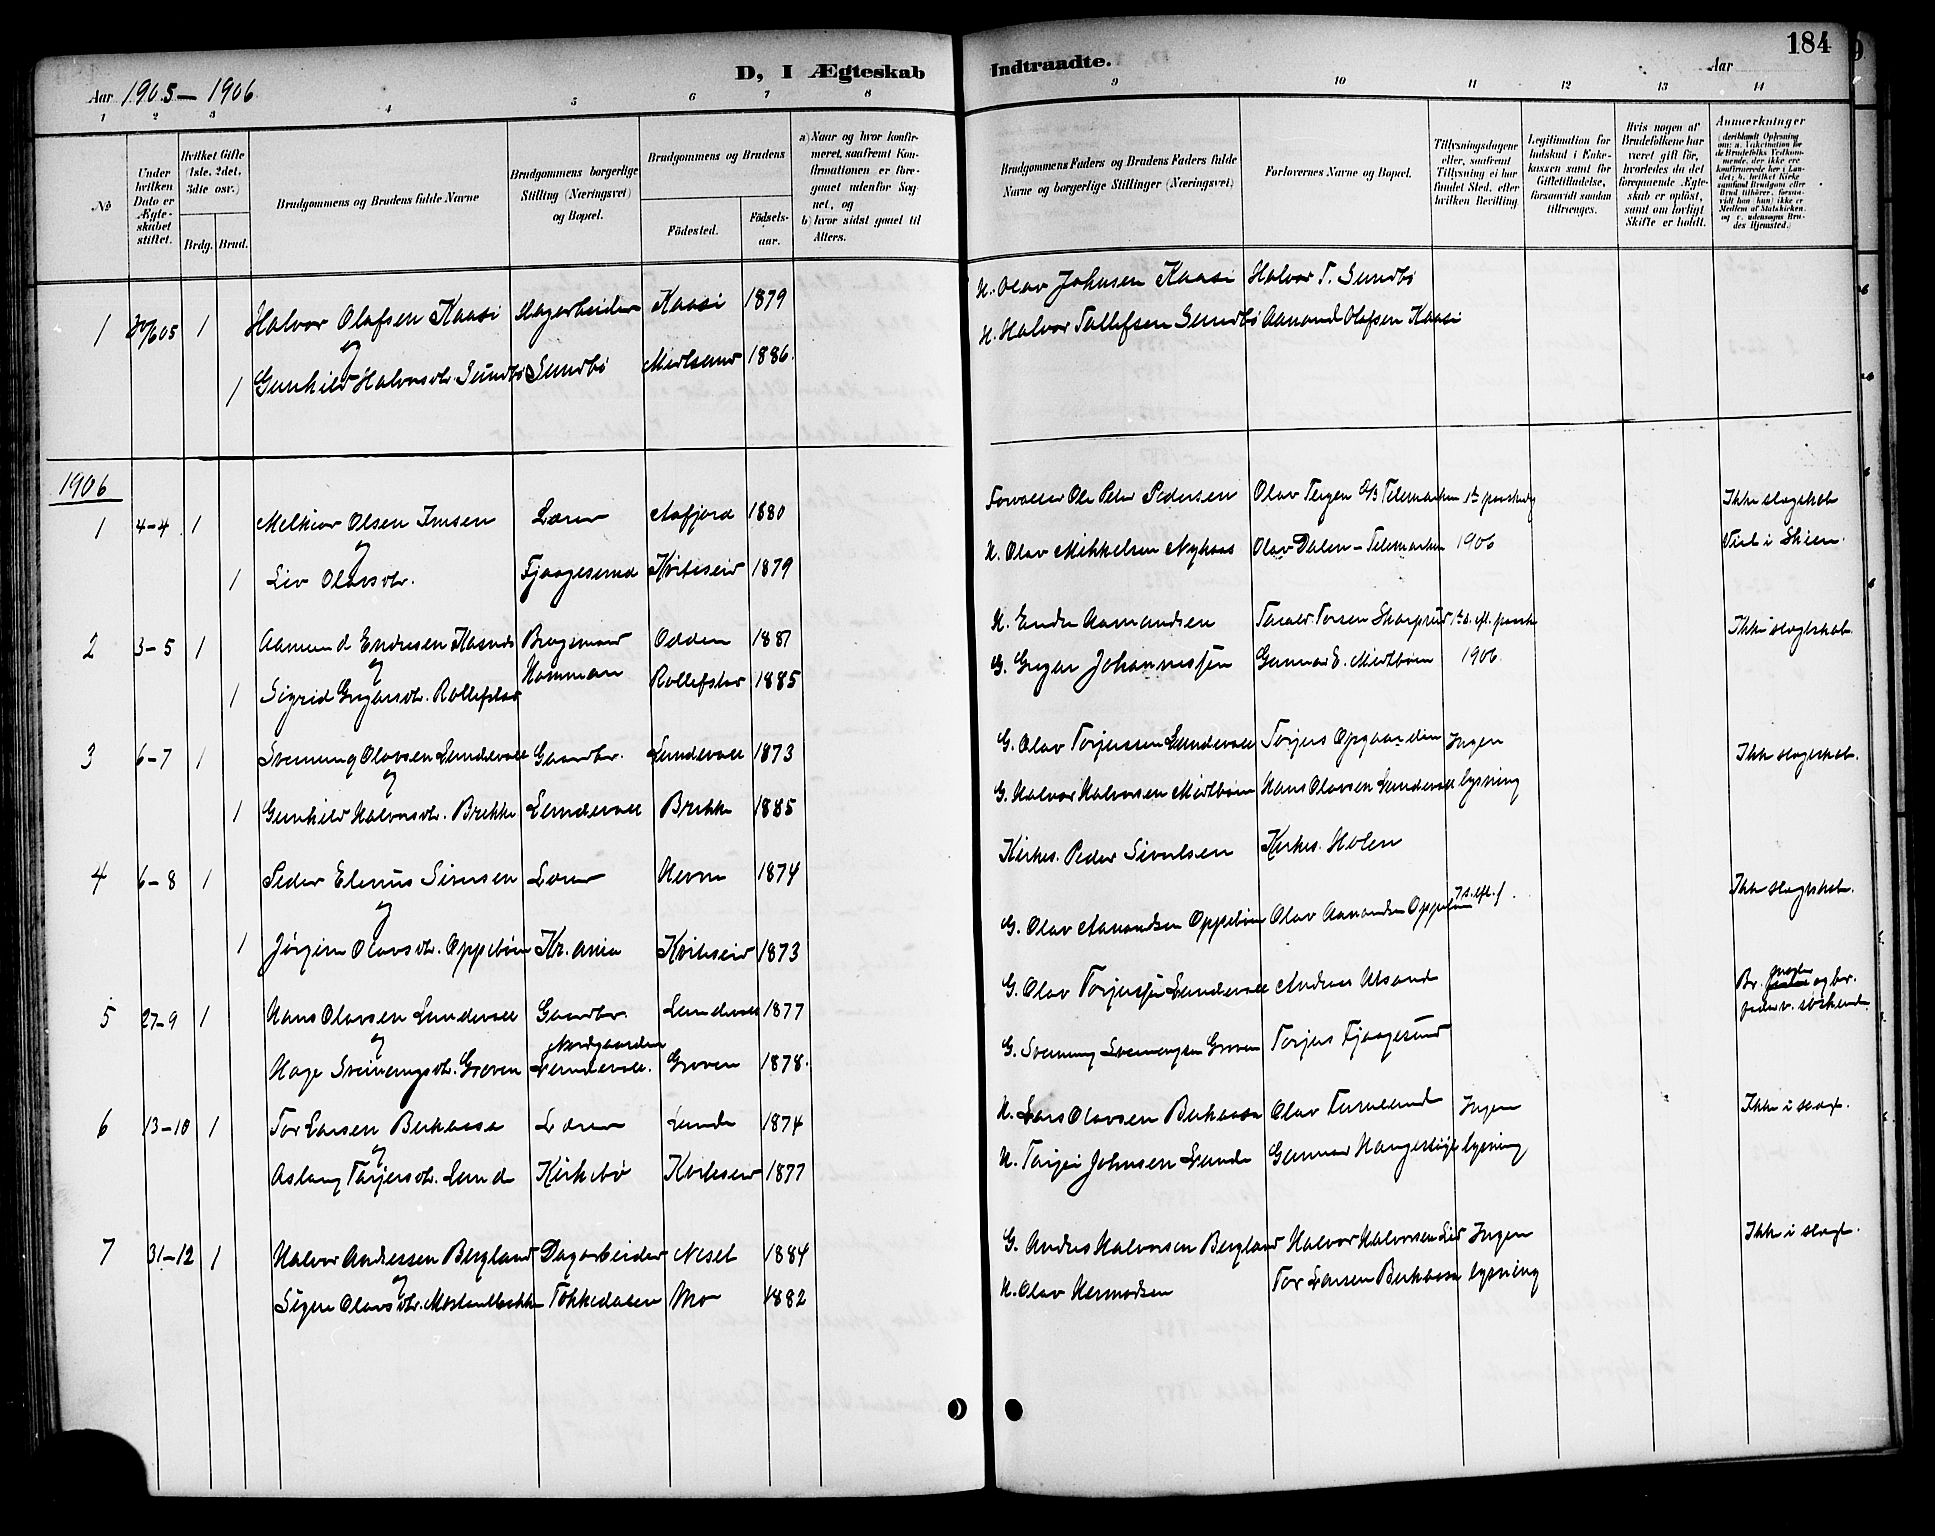 184
D, I Ægteskab Indtraadte.
Aar 1905–1906
Aar
1 2 3 4 5 6 7 8 9 10 11 12 13 14
No
Under hvilken Dato er Ægteskabet stiftet.
Hvilket Gifte (1ste, 2det, 3die osv.)
Brdg. Brud.
Brudgommens og Brudens fulde Navne
Brudgommens borgerlige Stilling (Næringsvei) og Bopæl.
Brudgommens og Brudens
Födested.
Födsels-aar.
a) Naar og hvor konfirmeret, saafremt Konfirmationen er foregaaet udenfor Sognet, og
b) hvor sidst gaaet til Alters.
Brudgommens Faders og Brudens Faders fulde Navne og borgerlige Stillinger (Næringsvei)
Forlovernes Navne og Bopæl.
Tillysningsdagene eller, saafremt Tillysning ei har fundet Sted, efter hvilken Bevilling
Legitimation for Indskud i Enkekassen samt for Giftetilladelse, forsaavidt saadan tiltrænges.
Hvis nogen af Brudefolkene har været gift för, hvorledes da det foregaaende Ægteskab er oplöst, samt om lovligt Skifte er holdt.
Anmærkninger
1 1 Halvor Olafsen Kaasi Dagarbeider Kaasi 1879 N. Olav Johnsen Kaasi Halvor T. Sundbö
og
1 Gunhild Halvorsdtr. Sundbö Sundbö 1886. N. Halvor Tallefsen Sundbö Aanund Olafsen Kaasi
1906
1 4-4 1 Melkior Olsen Imsen Lærer Aafjord 1880 Forvalter Ole Peter Pedersen Olav Ikke slægtskab
og
1 Liv Olavsdtr. Fjaagesund Kviteseid 1879 N. Olav Mikkelsen Nykaas Olav Dalen – Telemarken 1906 Viel i Skien.
2 3-5 1 Aamund Endresen Brogmand Odden 1881 N. Endre Aamundsen Ikke slægtskab.
og
1 Sigrid Gregarsdtr. Rollefstad Rollefstad 1885 G. Gregar Johannessen Gunnar E. Midtböen 1906.
3 6-7 1 Sveinung Olavsen Lundevall Gaardbr. Lundevall 1873 G. Olav Torjerssen Lundevall Torjus Opgaarden Ingen Ikke slægtskab.
og
1 Gunhild Halvorsdtr. Brekke Lundevall Brekke 1885 G. Halvor Halvorsen Midtböen Hans Olavsen Lundevall lysning
4 6-8 1 Peder Elenus Sivertsen Lærer Hevne 1874 Kirkes. Peder Sivertsen Kirkes. Holen Ikke slægtskab.
og
1 Jörgine Olavsdtr. Oppeböen Kr.ania Kviteseid 1873 G. Olav Aanondsen Oppeböen Olav Aanondsen Oppeböen
5 27-9 1 Hans Olavsen Lundevall Gaardbr. Lundevall 1877 G. Olav Torjerssen Lundevall Andreas Utsond Br. moder og br. fader v. söskende.
og Nordgaarden
Hæge Sveinungsdtr. Groven Lundevall. Groven 1878. G. Sveinung Sveinungsen Groven Torjus Fjaagesund
6 13-10 1 Tor Larsen Berkaasa Lærer Lunde 1874 N. Lars Olavsen Berkaasa Olav Ingen Ikke i slægt.
og
Aslaug Torjersdtr. Lund Kirkebö Kviteseid 1877 N. Torjei Johnsen Lunde Gunnar lysning
7 31-12 1 Halvor Andressen Bergland Dagarbeider Neset 1884 G. Andres Halvorsen Bergland Halvor Halvorsen Lid Ingen Ikke i slægt.
og
Signe Olavsdtr. Tokkedalen Mo 1882 N. Olav Hermodsen Tor Larsen Berkaasa lysning